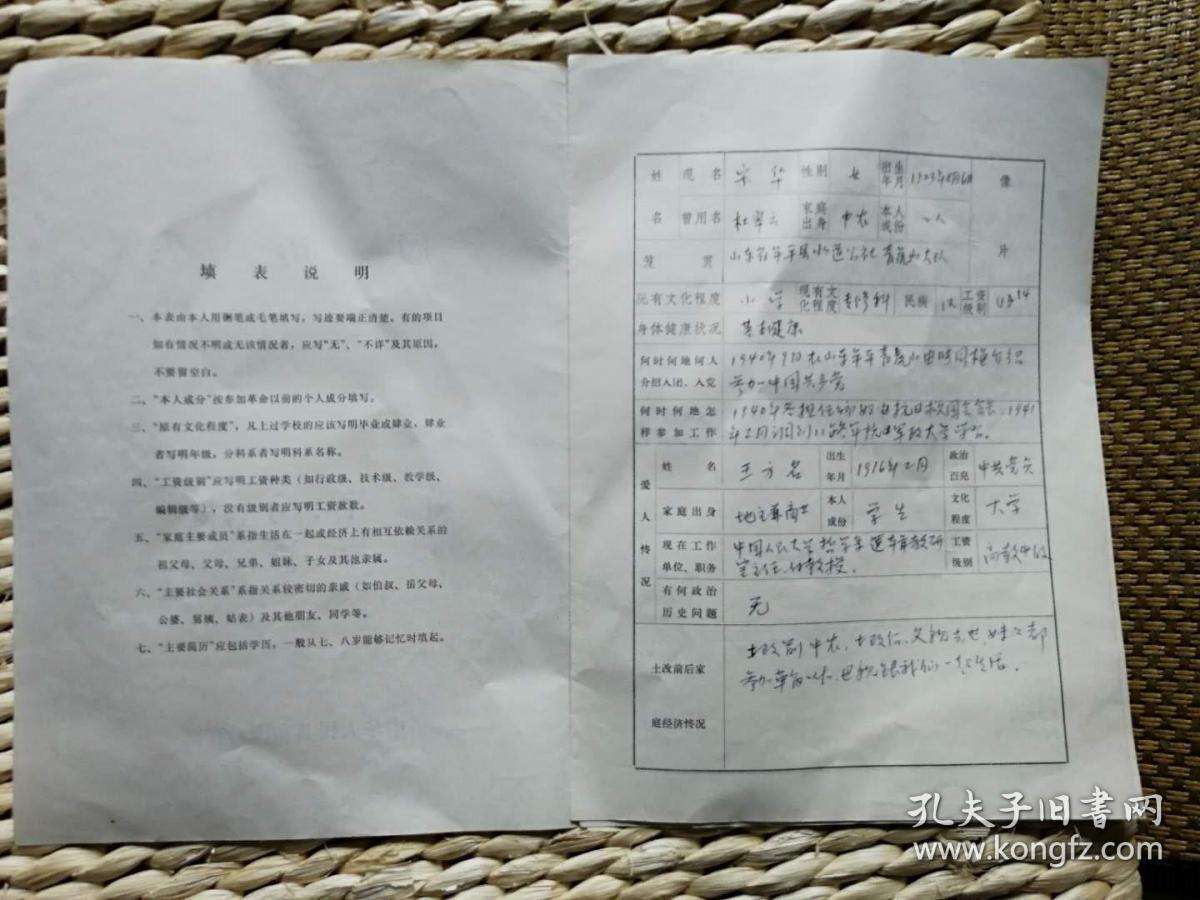 填表说明
一、本表由本人用钢笔或毛笔填写，写迹要端正清楚。有的项目
如有情况不明或无该情况者，应写“无”、“不详”及其原因，
不要留空白。
二、“本人成分”按参加革命以前的个人成分填写。
三、“原有文化程度”，凡上过学校的应该写明毕业或肄业，肄业
者写明年级，分科系者写明科系名称。
四、“工资级别”应写明工资种类（如行政级、技术级、教学级、
编辑级等），没有级别者应写明工资款数。
五、“家庭主要成员”系指生活在一起或经济上有相互依赖关系的
祖父母、父母、兄弟、姐妹、子女及其他亲属。
六、“主要社会关系”系指关系较密切的亲戚（如伯叔、岳父母、
公婆、舅姨、姑表）及其他朋友、同学等。
七、“主要简历”应包括学历，一般从七、八岁能够记忆时填起。
姓 现名 宋华 性别 女 出生年月 像
名 曾用名 杜翠云 家庭出身 中农 本人成份 片
笼贯 山东省牟平县水道公社
原有文化程度 小学 现有文化程度 专修科 民族 汉 工资级别
身体健康状况 基本健康
何时何地何人 1940年9月在山东牟平
介绍入团、入党 参加中国共产党
何时何地怎 1940年冬担任 抗日救国会会长、1941
样参加工作 年2月调到八路军抗日军政大学学习。
爱人情况
姓名 王方名 出生年月 1916年2月 政治面貌 中共党员
家庭出身 地主兼商业 本人成份 学生 文化程度 大学
现在工作 中国人民大学哲学系逻辑教研 工资
单位、职务 室主任、付教授。 级别
有何政治
历史问题 无
土改前后家 土改前中农，土改后，父亲去世，姊妹都
庭经济情况 参加革命工作、母亲跟我们一起生活。
孔夫子旧書网
www.kongfz.com